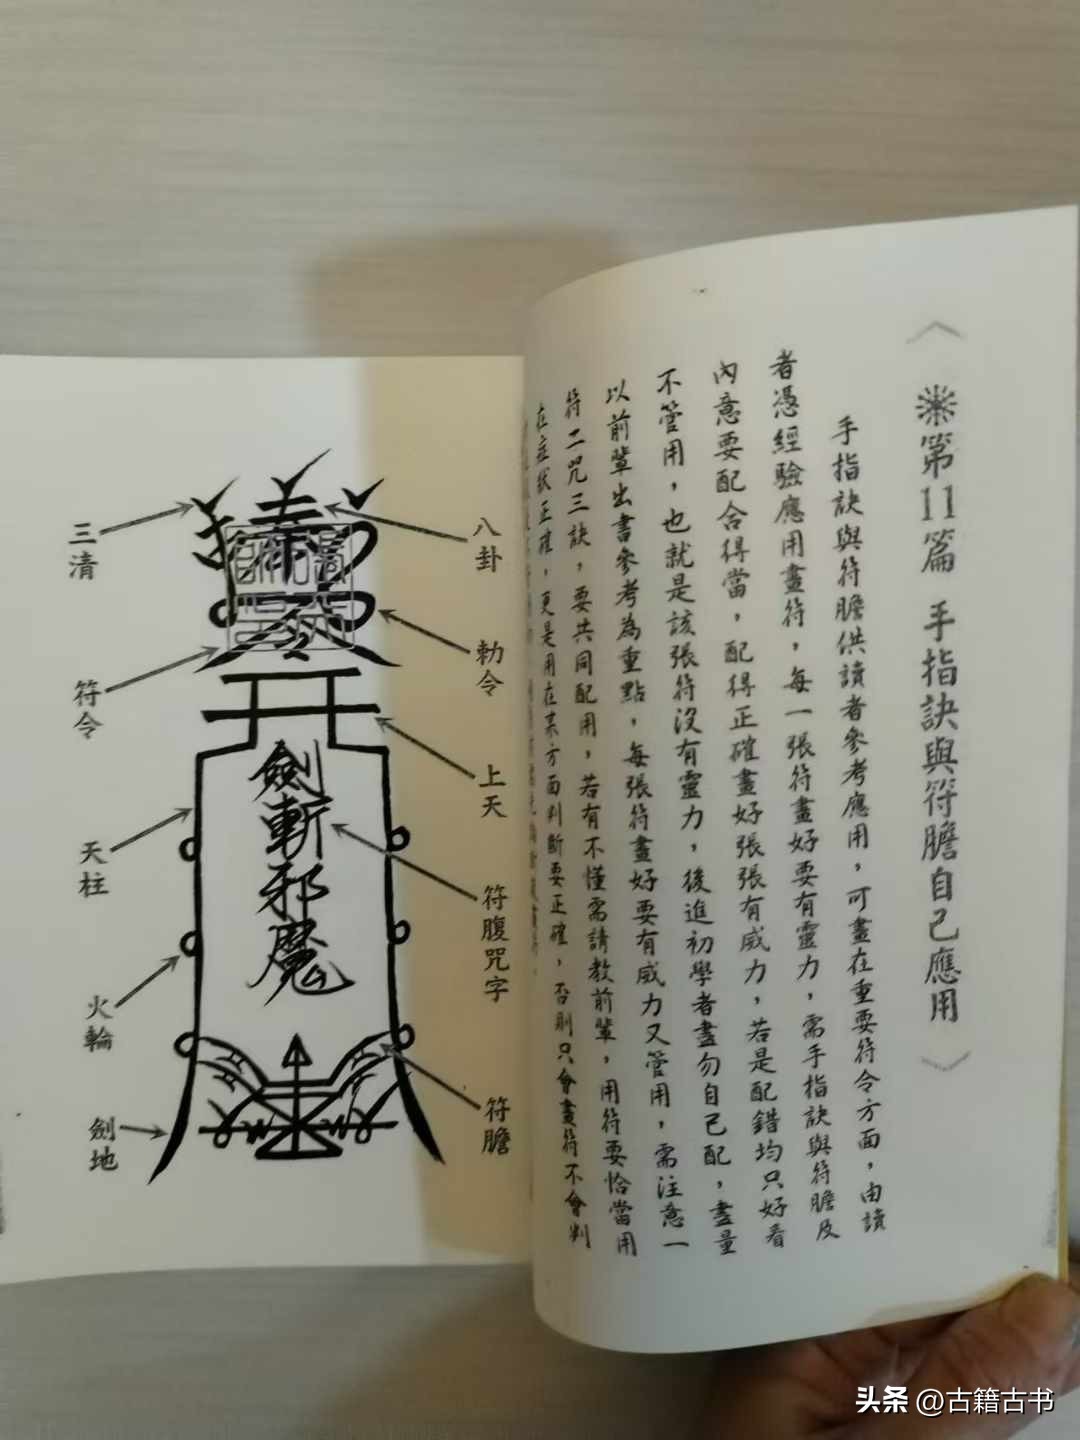 第11篇 手指訣與符膽自己應用
手指訣與符膽供讀者參考應用，可畫在重要符令方面，由讀
者憑經驗應用畫符，每一張符畫好要有靈力，需手指訣與符膽及
內意要配合得當，配得正確畫好張張有威力，若是配錯均只好看
不管用，也就是該張符沒有靈力，後進初學者畫勿自己配，盡量
以前輩出書參考為重點，每張符畫好要有威力又管用，需注意一
符二咒三訣，要共同配用，若有不懂需請教前輩，用符要恰當用
在症狀正確，更是用在某方面判斷要正確，否則只會畫符不會判
八卦
勅令
上天
符腹咒字
符膽
三清
符令
天柱
火輪
劍地
劍斬邪魔
头条 @古籍古书